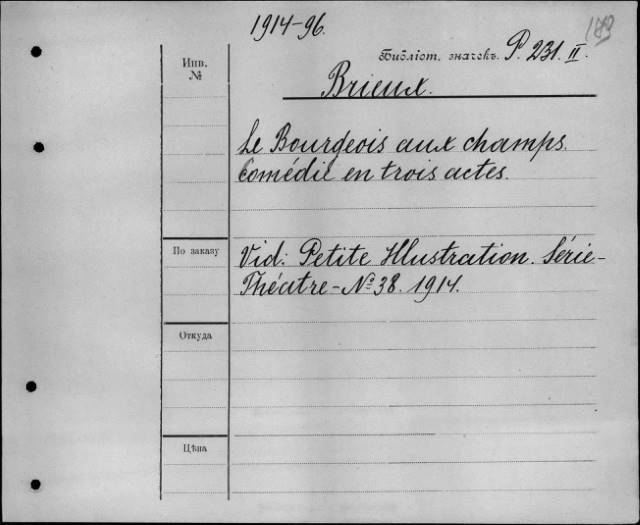 1914-96.
Инв. №
Библіот. значекъ P. 231. II.
Brieux.
Le Bourgeois aux champs.
Comédie en trois actes.
По заказу
Vid: Petite Illustration. Série-
Théatre-№ 38. 1914.
Откуда
Цѣна